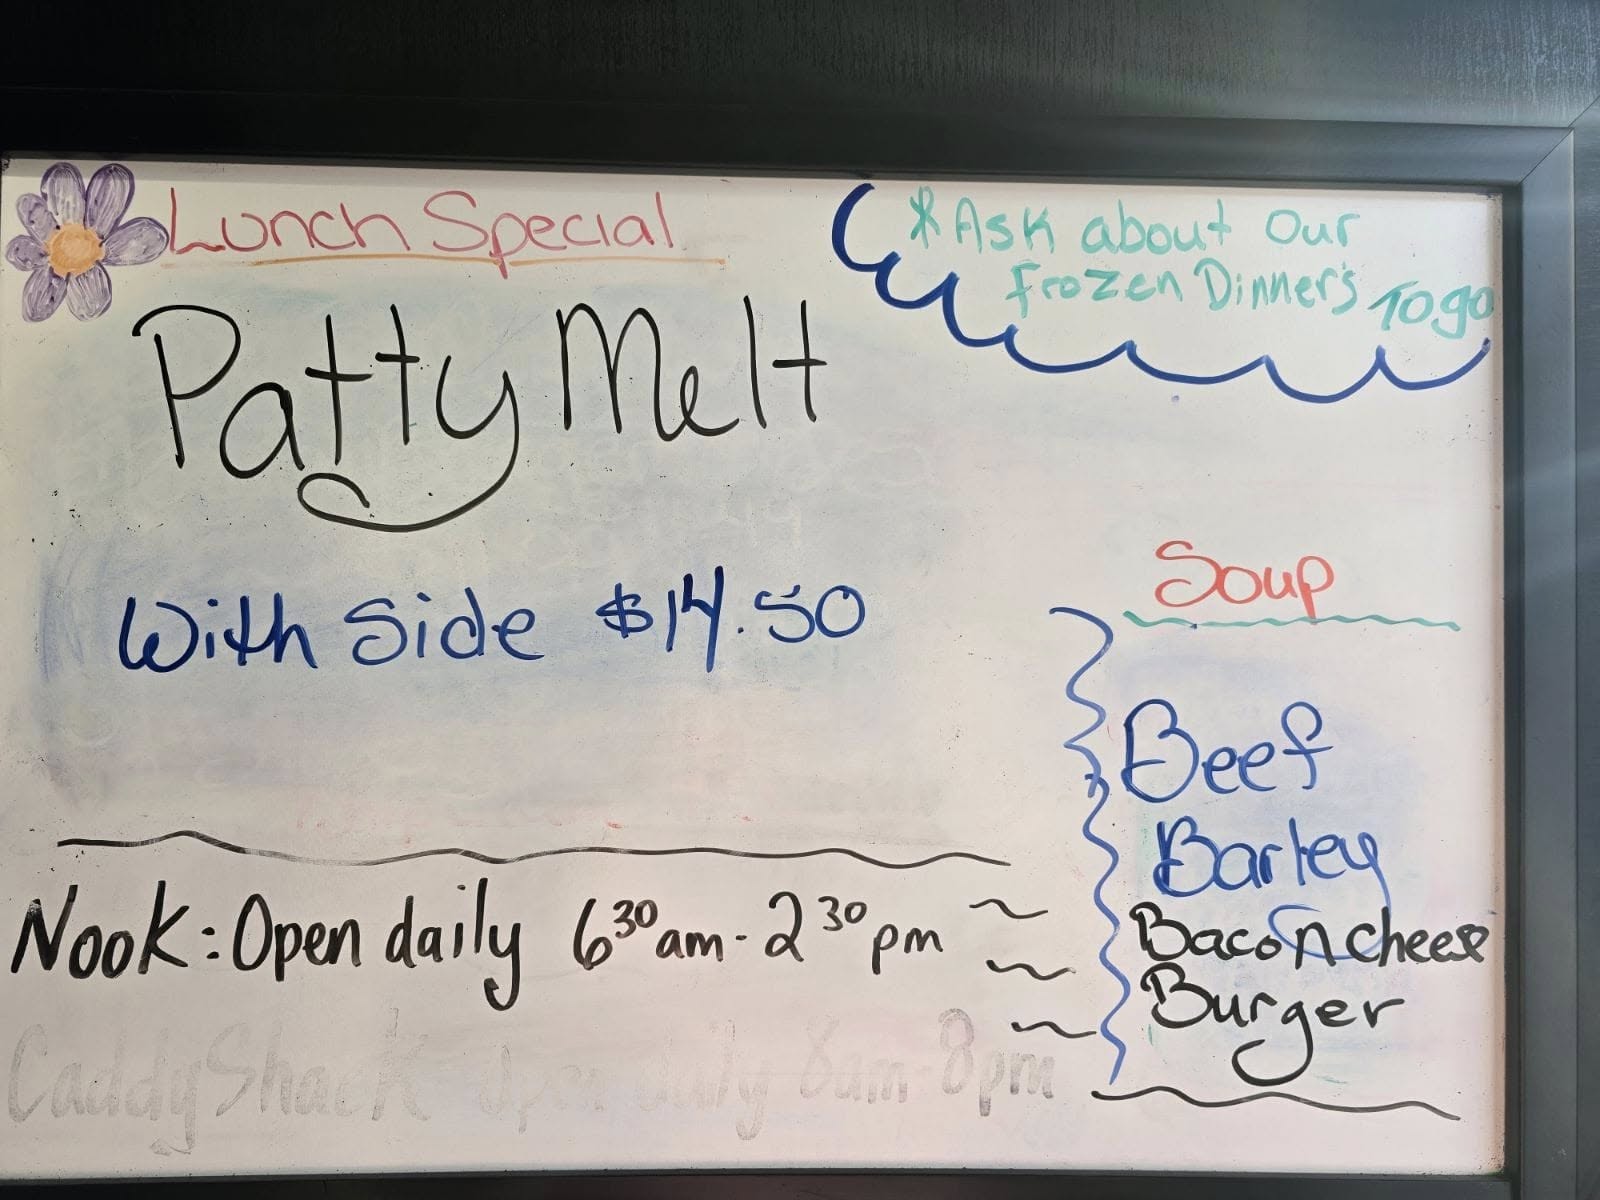 Lunch Special
Patty Melt
With Side $14.50
*Ask about Our
Frozen Dinner's To go
Soup
Beef
Barley
Bacon cheese
Burger
Nook: Open daily 6³⁰am - 2³⁰pm
CaddyShack Open daily 8am-8pm